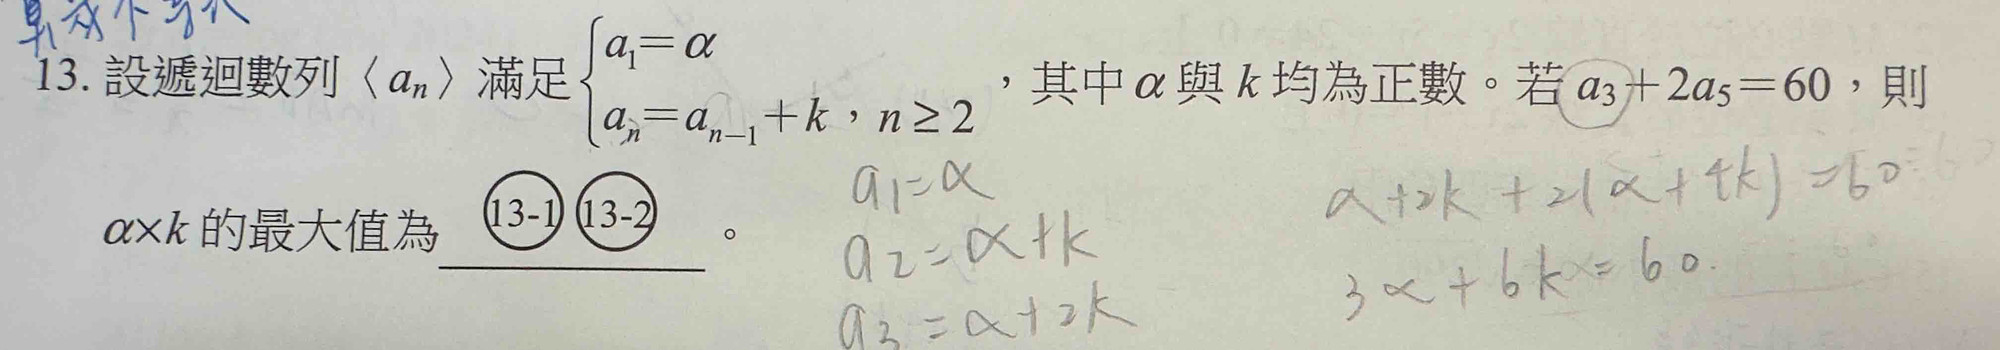 算幾不等式
13. 設遞迴數列〈aₙ〉滿足{a₁=α
aₙ=aₙ₋₁+k,n≥2
,其中α與k均為正數。若a₃+2a₅=60,則
α×k的最大值為 (13-1)(13-2) 。
a₁=α
a₂=α+k
a₃=α+2k
α+2k+2(α+4k)=60
3α+6k=60.